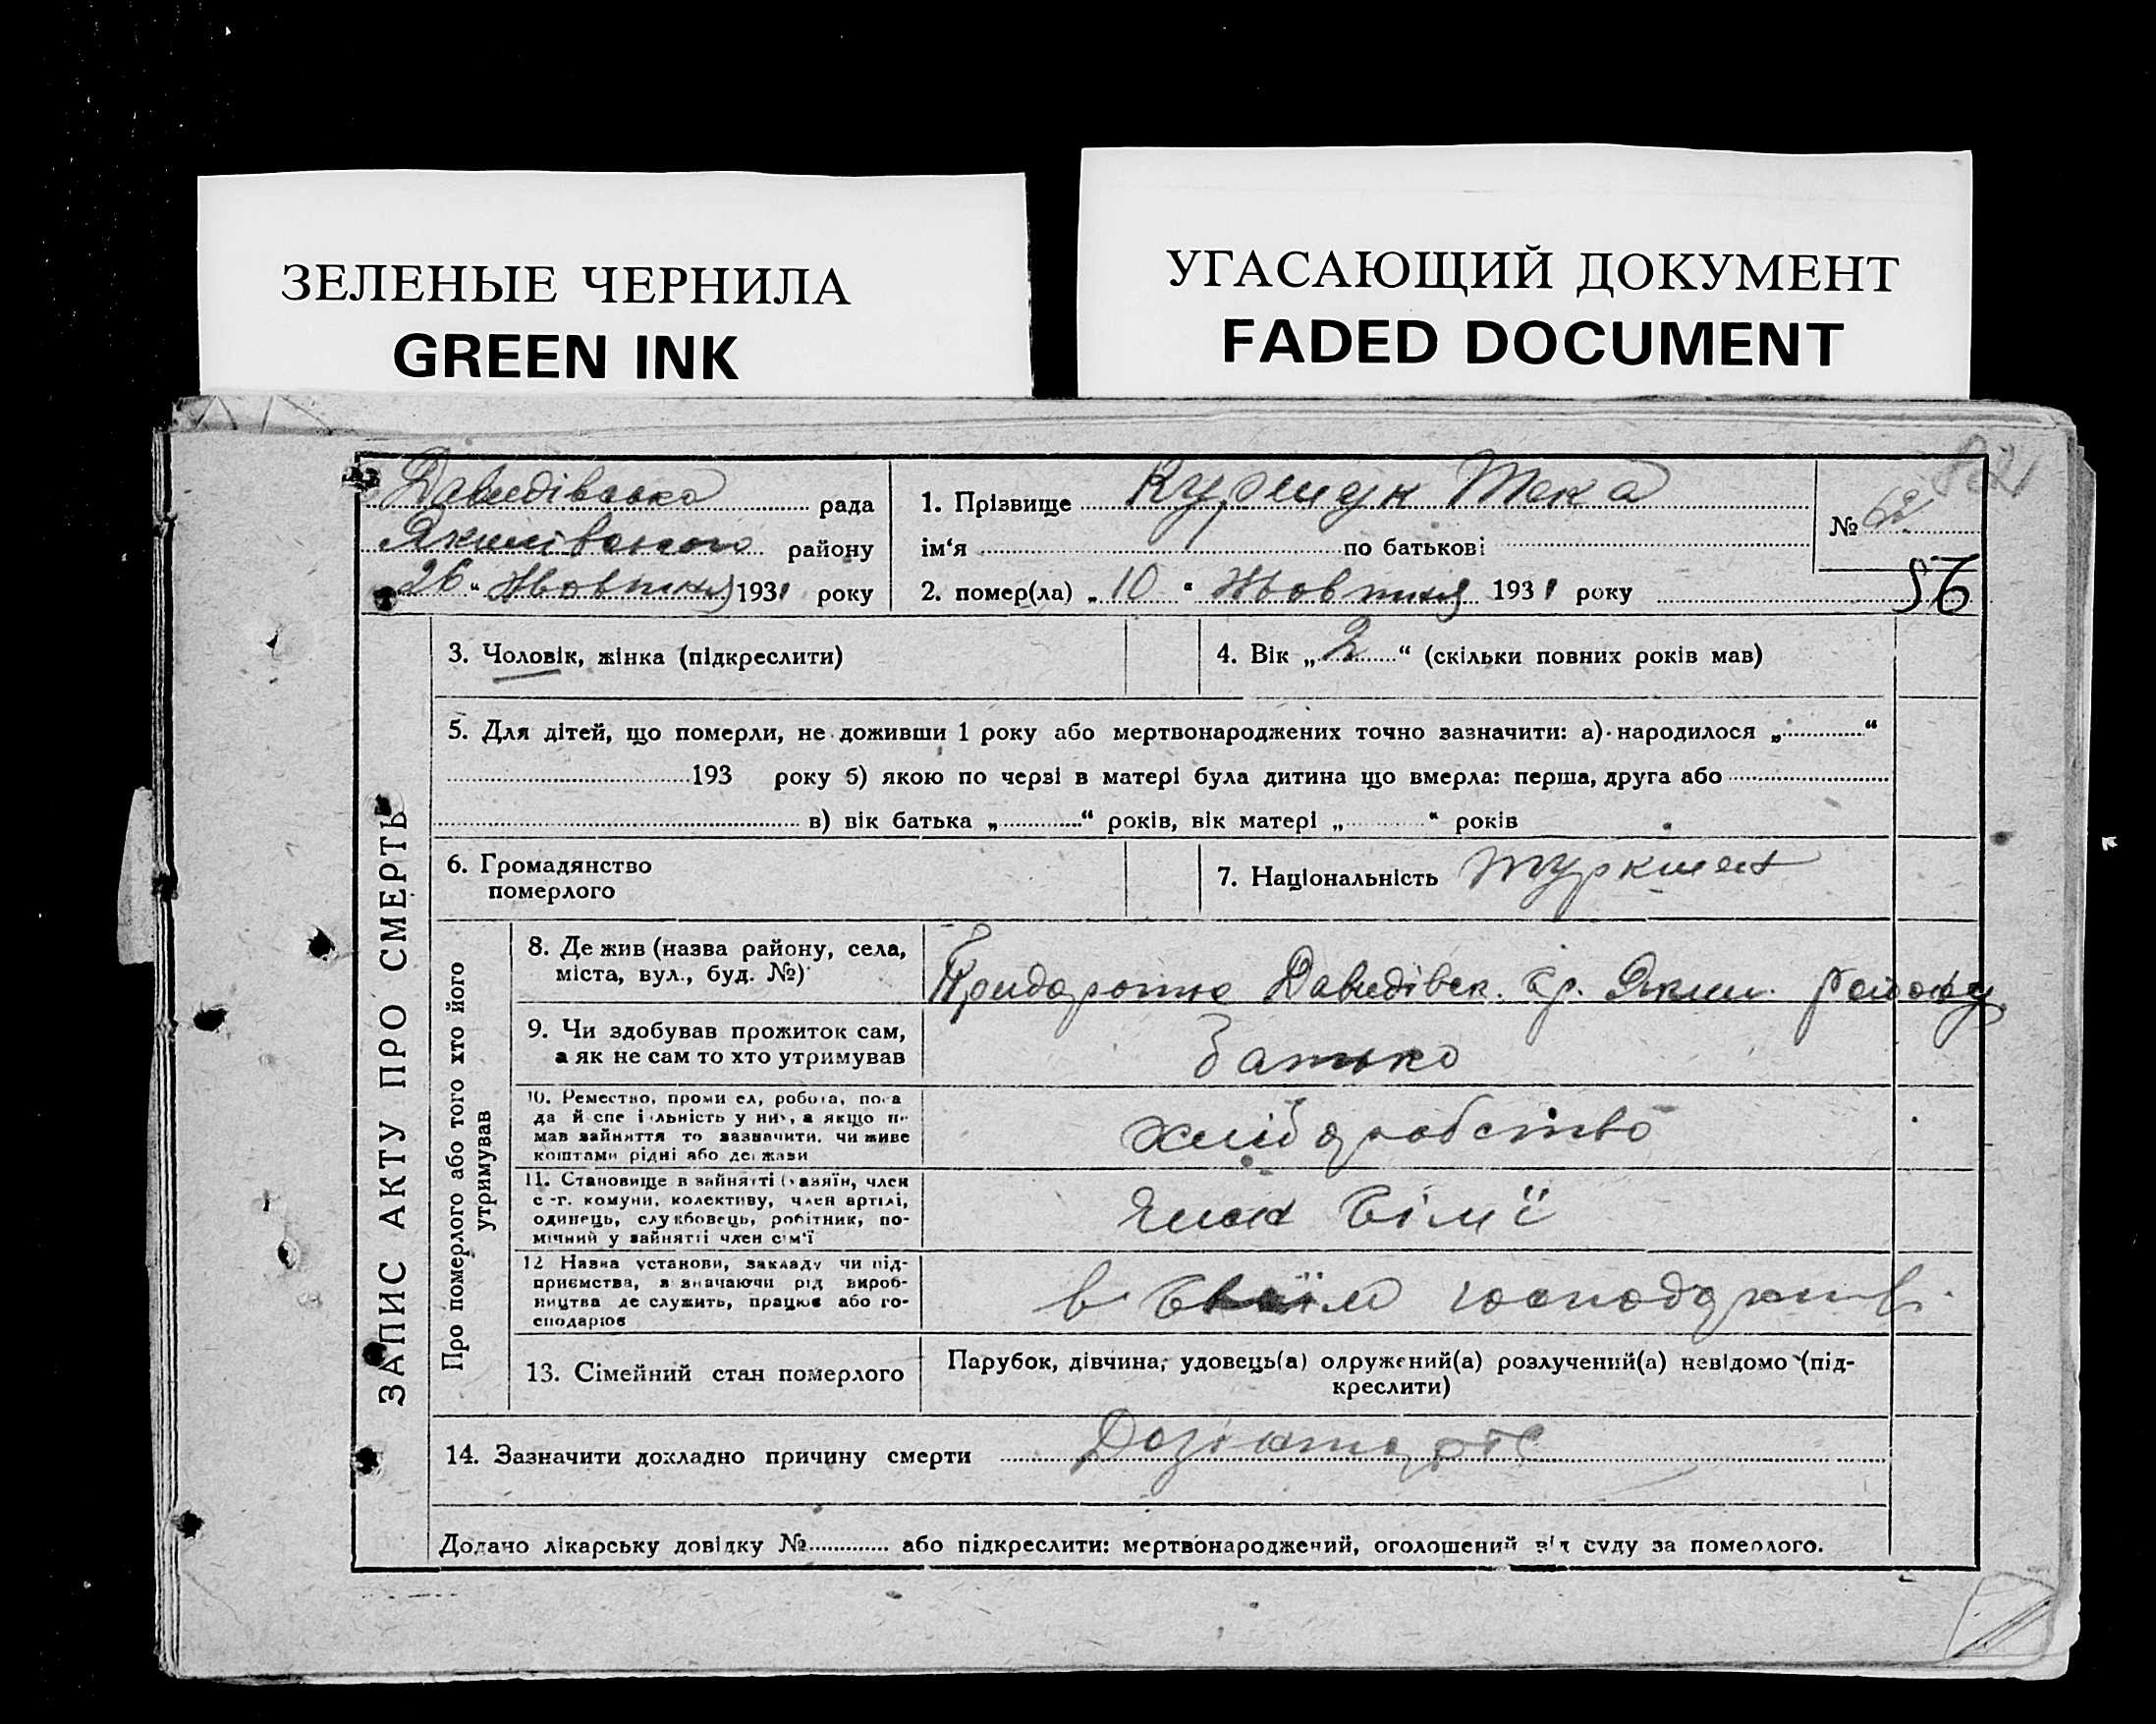 ЗЕЛЕНЫЕ ЧЕРНИЛА
GREEN INK
УГАСАЮЩИЙ ДОКУМЕНТ
FADED DOCUMENT
Давидівська рада
Якимівського району
26 " Жовтня 1931 року
1. Прізвище
ім‘я по батькові
2. помер(ла) „ 10 " Жовтня 1931 року
№
56
ЗАПИС АКТУ ПРО СМЕРТЬ
3. Чоловік, жінка (підкреслити)
4. Вік „ 2 “ (скільки повних років мав)
5. Для дітей, що померли, не доживши 1 року або мертвонароджених точно зазначити: а) народилося „ “
193 року б) якою по черзі в матері була дитина що вмерла: перша, друга або
в) вік батька „ “ років, вік матері „ “ років
6. Громадянство
померлого
7. Національність туркмен
Про померлого або того хто його
утримував
8. Де жив (назва району, села,
міста, вул., буд. №)
Давидівск. с/р. Яким. району
9. Чи здобував прожиток сам,
а як не сам то хто утримував
батько
10. Ремество, промисел, робота, поса
да й спеціальність у них, а якщо не
мав зайняття то зазначити, чи живе
коштами рідні або держави
хліборобство
11. Становище в зайнятті (хазяїн, член
с-г. комуни, колективу, член артілі,
одинець, службовець, робітник, по-
мічний у зайнятті член сім'ї
член сім'ї
12 Назва установи, закладу чи під-
приємства, зазначаючи рід вироб-
ництва де служить, працює або го-
сподарює
в своїм господарстві
13. Сімейний стан померлого
Парубок, дівчина, удовець(а) одружений(а) розлучений(а) невідомо (під-
креслити)
14. Зазначити докладно причину смерти
Додано лікарську довідку № або підкреслити: мертвонароджений, оголошений від суду за померлого.